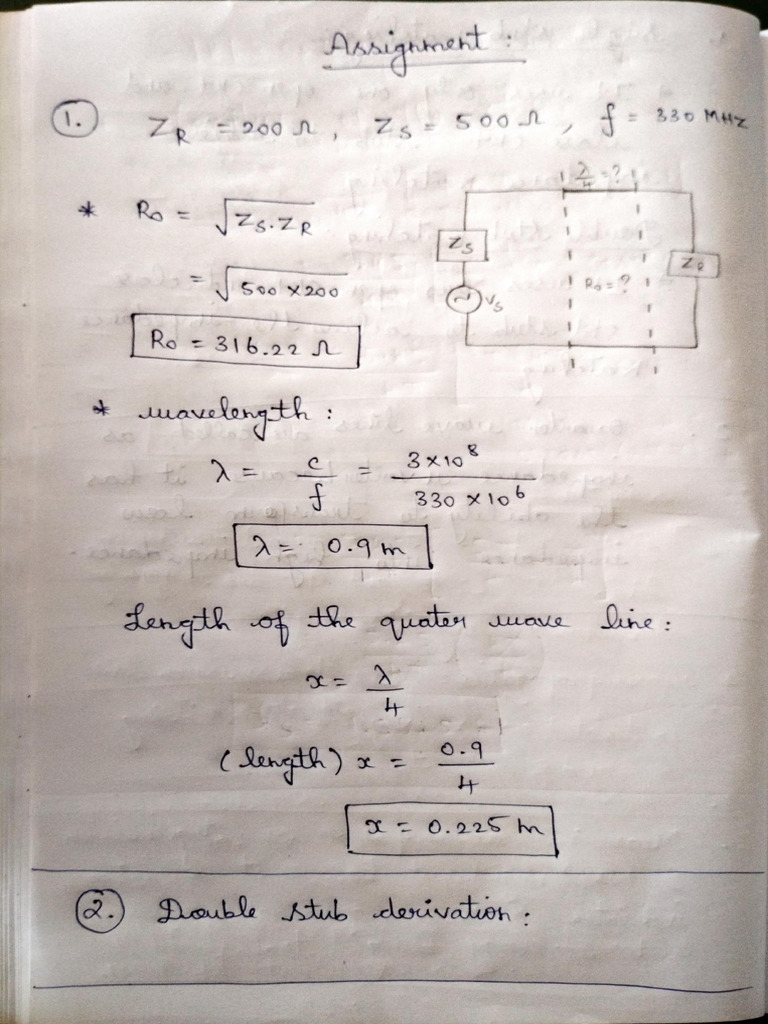 Assignment :
1. Z_R = 200 Ω , Z_S = 500 Ω , f = 330 MHZ
λ/4 = ?
* R₀ = √Z_S.Z_R
Z_S
Z_R
= √500 × 200
R₀ = ?
V_S
R₀ = 316.22 Ω
* wavelength :
λ = c/f = 3 × 10⁸ / 330 × 10⁶
λ = 0.9 m
Length of the quater wave line :
x = λ/4
(length) x = 0.9/4
x = 0.225 m
2. Double stub derivation :